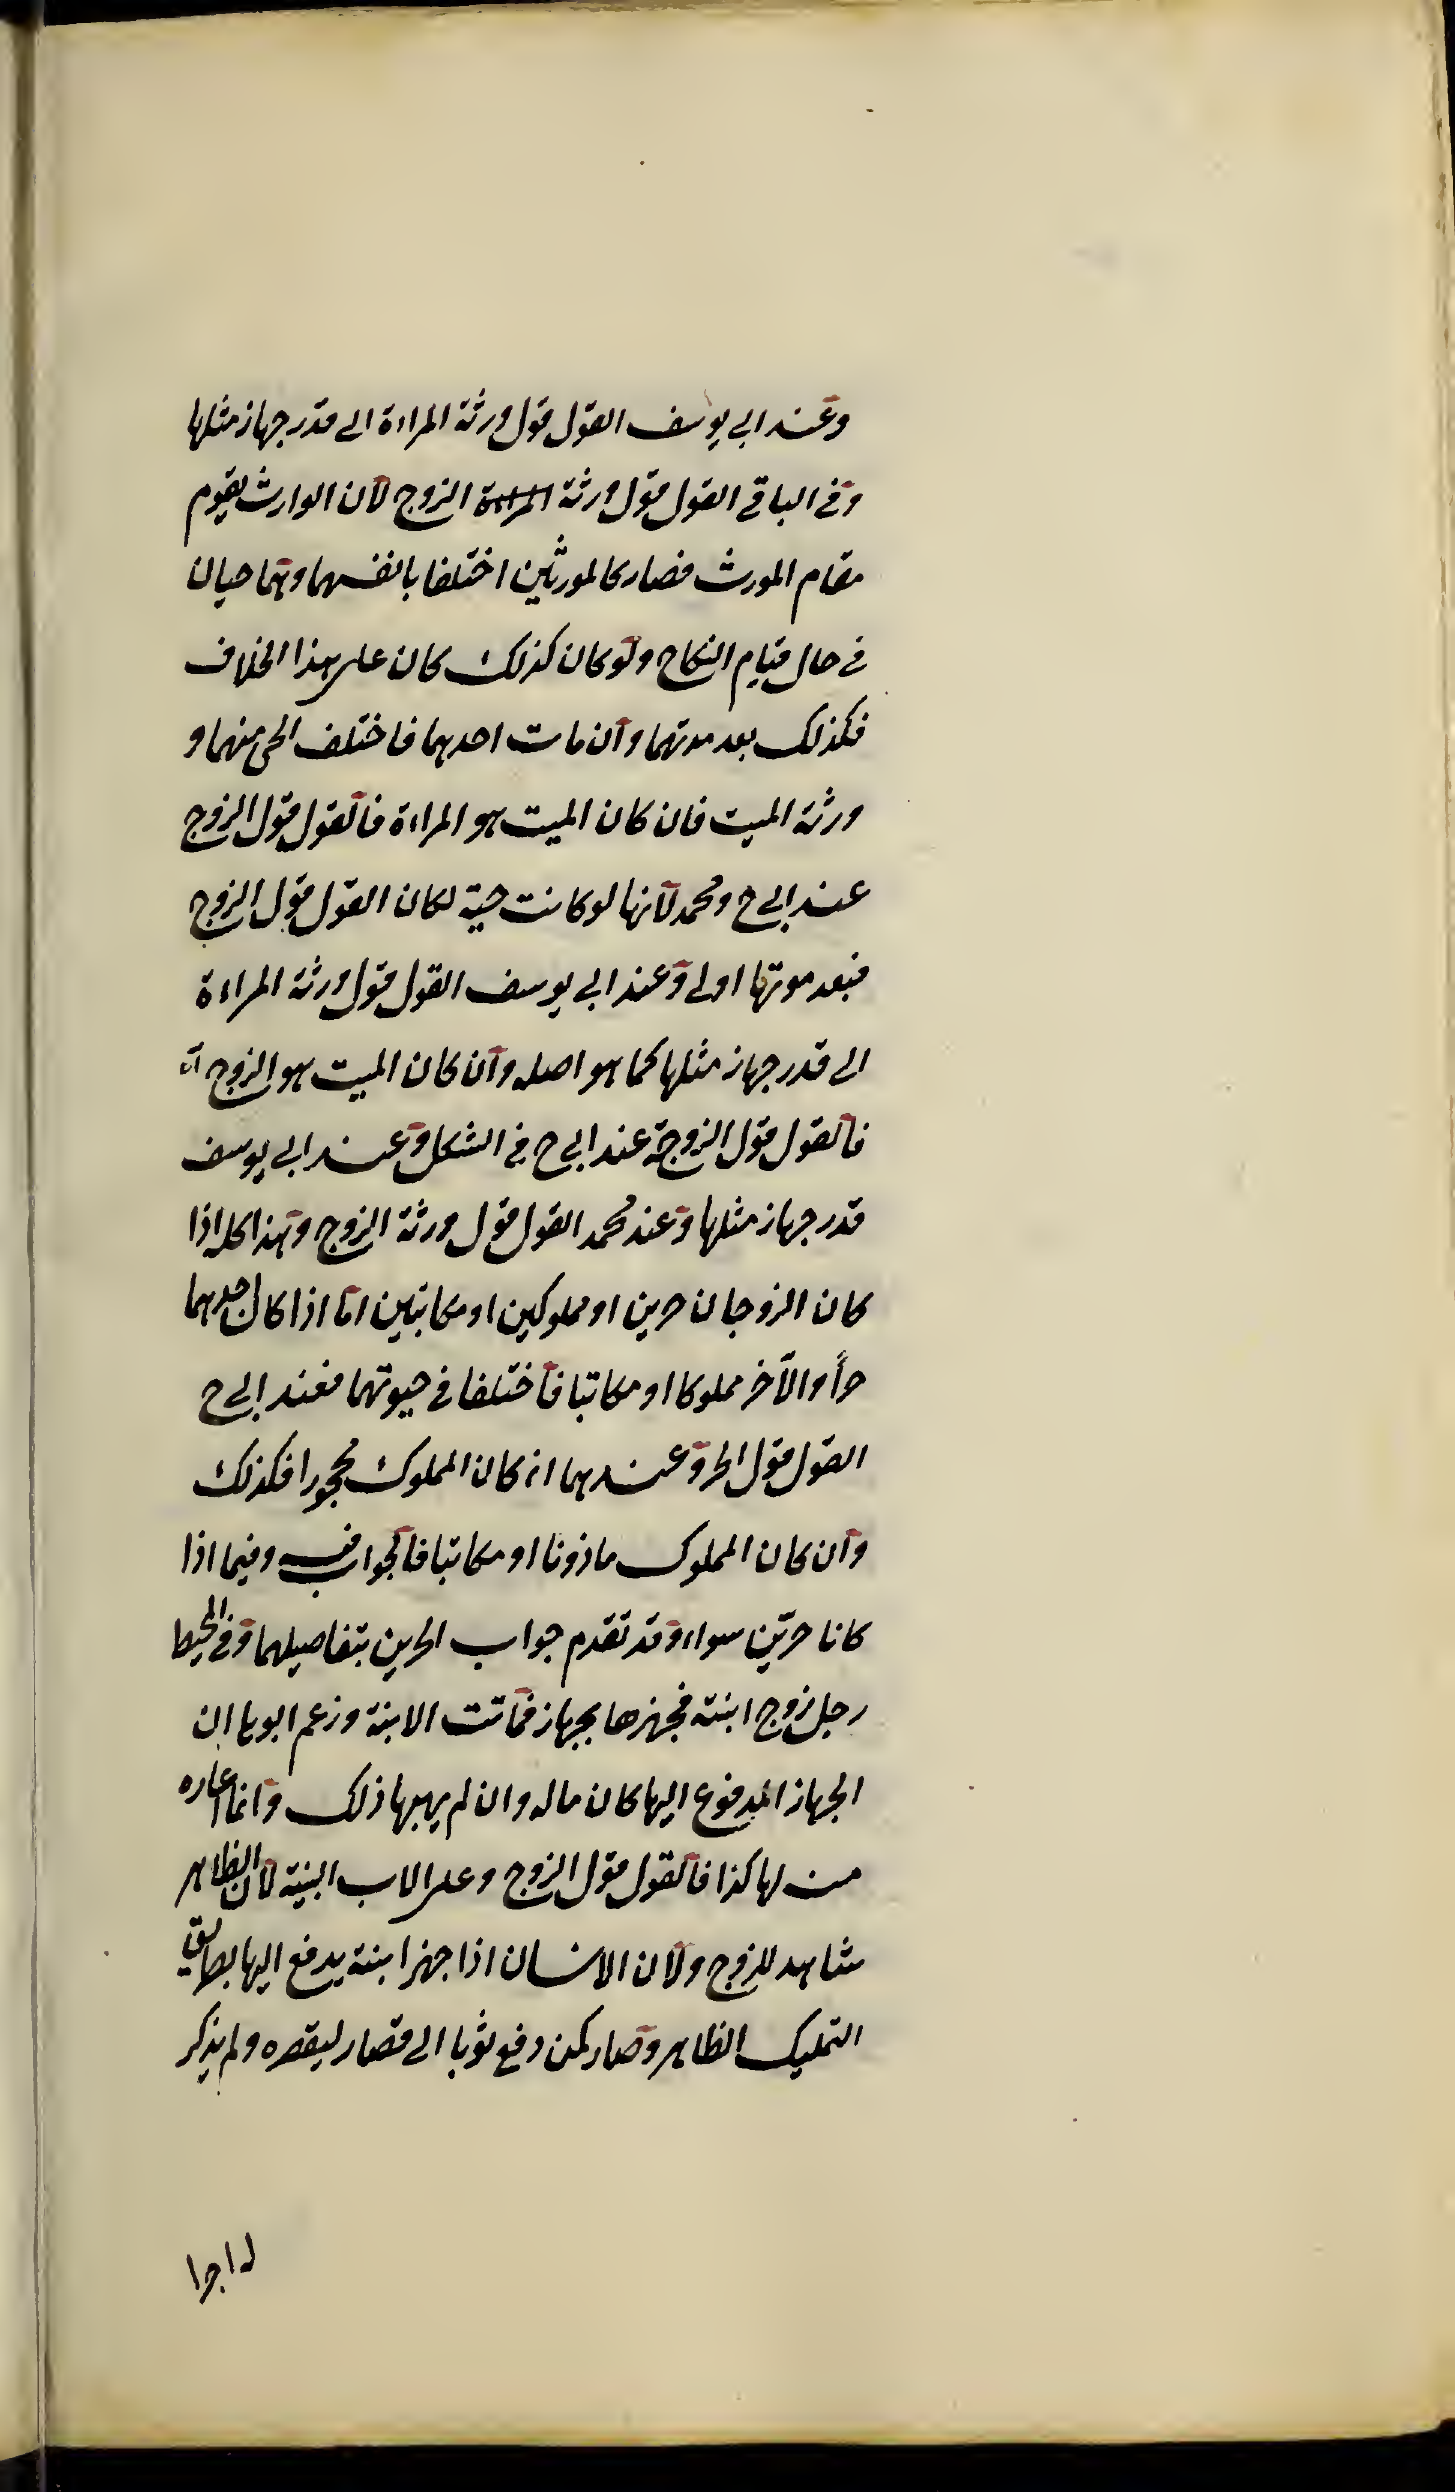 وعند ابي يوسف القول قول ورثة المراءة الى قدر جهاز مثلها
وفى الباقى القول قول ورثة المراءة الزوج لان الوارث يقوم
مقام المورث فصار كالمورثين اختلفا بانفسهما وهما حيان
فى حال قيام النكاح ولو كان كذلك كان على هذا الخلاف
فكذلك بعد موتهما وان مات احدهما فاختلف الحى منهما و
ورثة الميت فان كان الميت هو المراءة فالقول قول الزوج
عند ابى ح ومحمد لانها لو كانت حية لكان القول قول الزوج
فبعد موتها اولى وعند ابى يوسف القول قول ورثة المراءة
الى قدر جهاز مثلها كما هو اصله وان كان الميت هو الزوج
فالقول قول الزوجة عند ابى ح فى الشكل وعند ابى يوسف
قدر جهاز مثلها وعند محمد القول قول ورثة الزوج وهذا كله اذا
كان الزوجان حرين او مملوكين او مكاتبين اما اذا كان احدهما
حرا والآخر مملوكا او مكاتبا فاختلفا فى حيوتهما فعند ابى ح
القول قول الحر وعندهما ان كان المملوك محجورا فكذلك
وان كان المملوك ماذونا او مكاتبا فالجواب فيه وفيما اذا
كانا حرين سواء وقد تقدم جواب الحرين بتفاصيلهما وفى المحيط
رجل زوج ابنته فجهزها بجهاز فماتت الابنة وزعم ابوها ان
الجهاز المدفوع اليها كان ماله وان لم يهبها ذلك وانما اعاره
منها كذا فالقول قول الزوج وعلى الاب البينة لان الظاهر
شاهد للزوج ولان الانسان اذا جهز ابنته يدفع اليها بطريق
التمليك الظاهر وصار كمن دفع ثوبا الى قصار ليقصره ولم يذكر
له اجرا